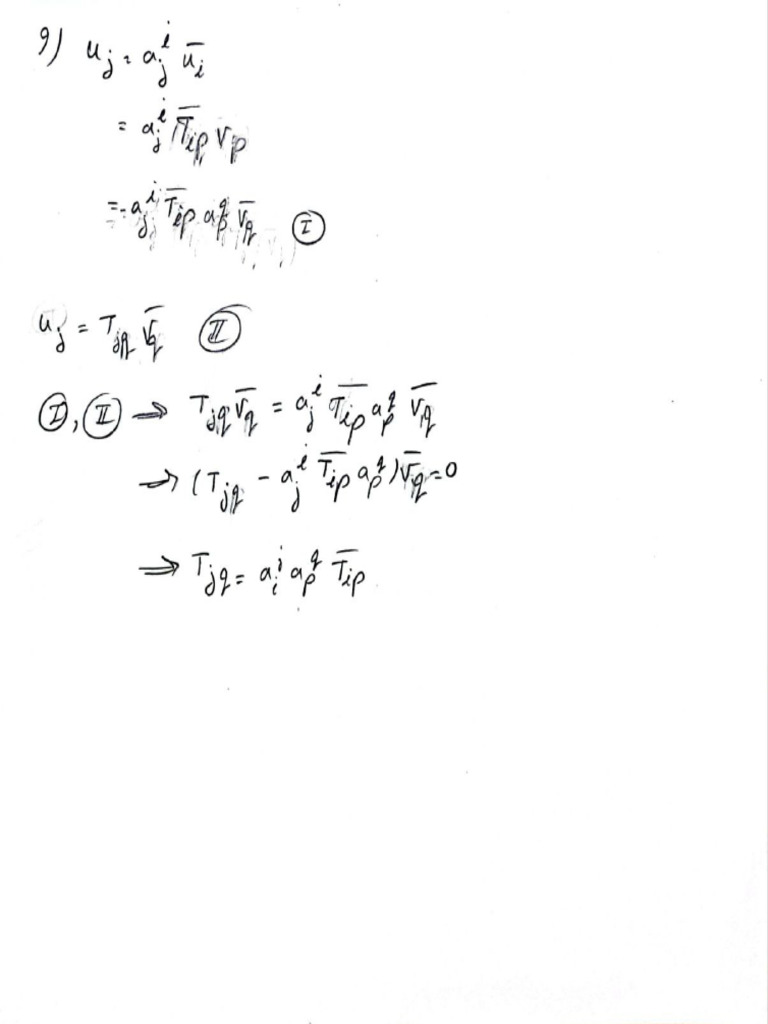 9) u_j = a_j^i ū_i
= a_j^i T̄_ip v_p
= a_j^i T̄_ip a_p^q v̄_q Ⓘ
u_j = T_jq v̄_q Ⓘ︎Ⓘ
Ⓘ, ⒾⒾ → T_jq v̄_q = a_j^i T̄_ip a_p^q v̄_q
→ (T_jq - a_j^i T̄_ip a_p^q) v̄_q = 0
⇒ T_jq = a_i^j a_p^q T̄_ip